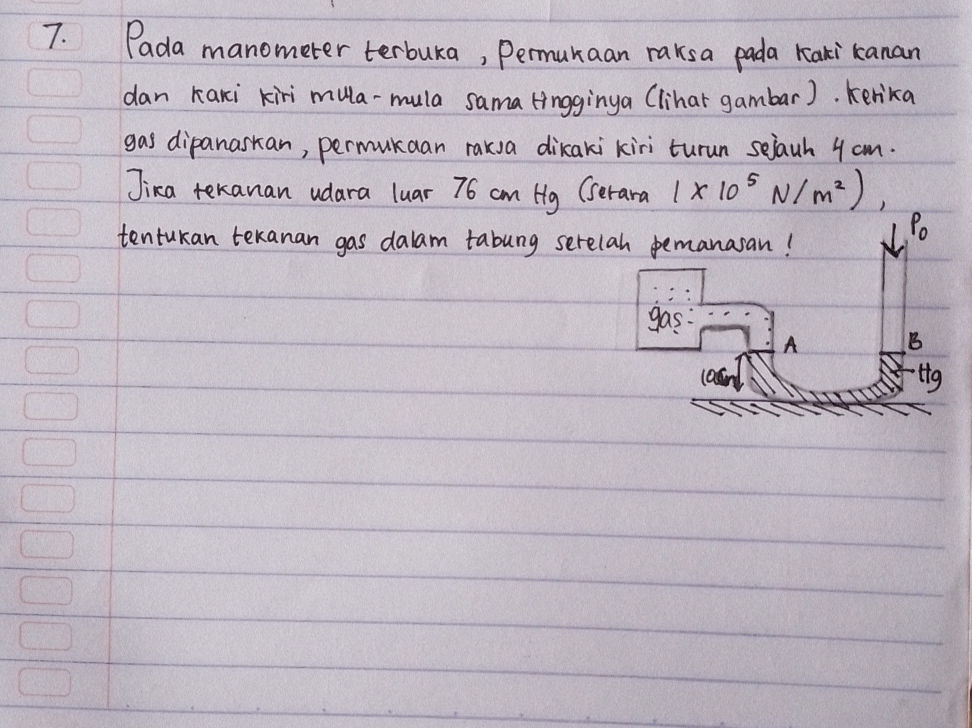 7. Pada manometer terbuka, permukaan raksa pada kaki kanan
dan kaki kiri mula-mula sama tingginya (lihat gambar). Ketika
gas dipanaskan, permukaan raksa dikaki kiri turun sejauh 4 cm.
Jika tekanan udara luar 76 cm Hg (setara 1 × 10⁵ N/m²),
tentukan tekanan gas dalam tabung setelah pemanasan!
P₀
gas
A
B
Hg